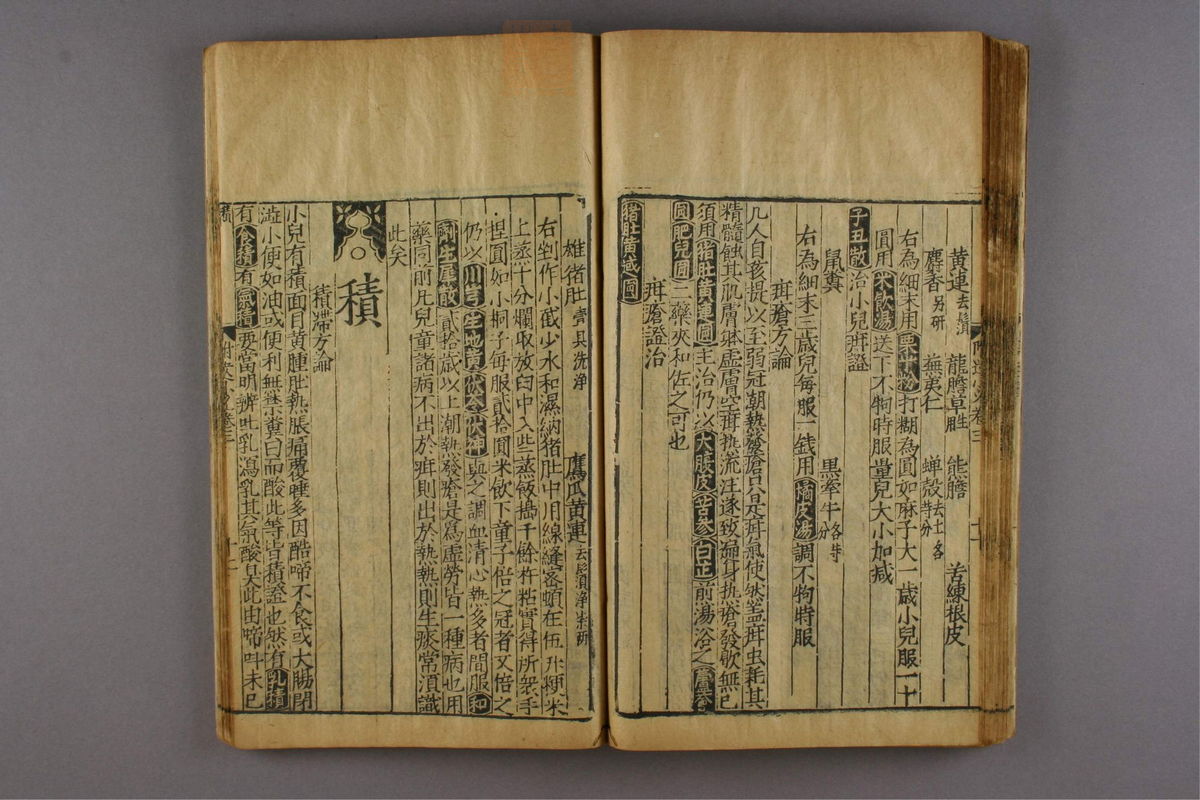 黄連去鬚 龍膽草 熊膽 苦練根皮
麝香另研 蕪荑仁 蟬殼去土各等分
右為細末用粟米粉打糊為圓如麻子大一歲小兒服一十
圓用米飲湯送下不拘時服量兒大小加減
子丑散治小兒疳證
鼠糞 黑牽牛各等分
右為細末三歲兒每服一錢用橘皮湯調不拘時服
疳瘡方論
凡人自孩提以至弱冠潮熱發瘡只是疳氣使然蓋疳虫耗其
精髓蝕其肌膚躰虛膚空疳熱流注遂致遍身熱瘡發歇無已
須用猪肚黄連圓主治仍以大腹皮苦參白芷煎湯浴之蘆薈
圓肥兒圓二藥夾和佐之可也
疳瘡證治
猪肚黄連圓
雄猪肚壹具洗淨 鷹爪黄連去鬚淨
右剉作小截少水和濕納猪肚中用線縫密頓在伍升粳米
上蒸十分爛取放臼中入些蒸飯搗千餘杵粘實得所衆手
捏圓如小桐子每服貳拾圓米飲下童子倍之冠者又倍之
仍以川芎生地黄茯苓茯神與之調血清心熱多者間服和
劑生犀散貳拾歲以上潮熱發瘡是爲虛勞皆一種病也用
藥同前凡兒童諸病不出於疳則出於熱熱則生痰常須識
此矣
積
積滯方論
小兒有積面目黄腫肚熱脹痛覆睡多困酷啼不食或大腸閉
澁小便如油或便利無禁糞白而酸此等皆積證也然有乳積
有食積有氣積要當明辨吐乳瀉乳其氣酸臭此由啼叫未已